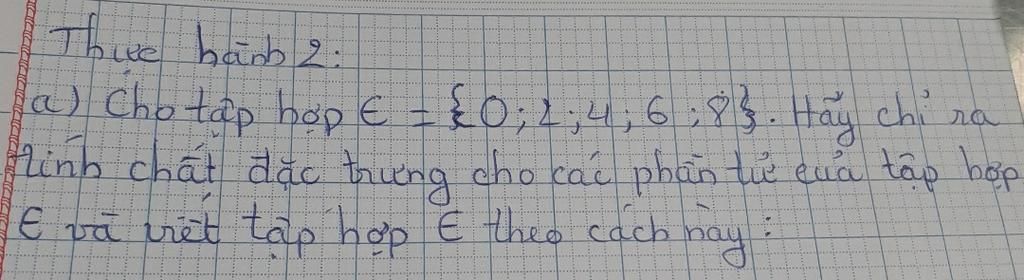 Thực hành 2:
a) Cho tập hợp E = {0; 2; 4; 6; 8}. Hãy chỉ ra
tính chất đặc trưng cho các phần tử của tập hợp
E và viết tập hợp E theo cách này: